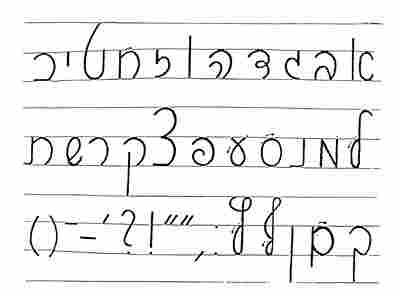 א ב ג ד ה ו ז ח ט י כ
ל מ נ ס ע פ צ ק ר ש ת
ך ם ן ף ץ : , " " ! ? ' – - ( )